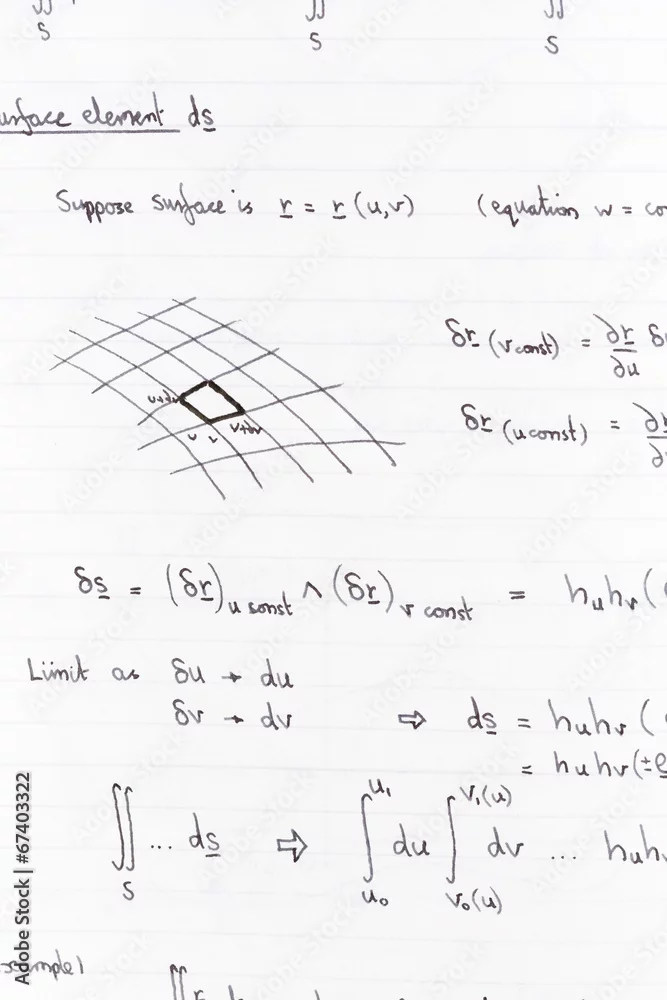 ∬ ∬ ∬
S S S
urface element ds
Suppose surface is r = r (u,v) (equation w = co
δr (v const) = ∂r/∂u δ
u+du
u v v+dv
δr (u const) = ∂r/∂
δs = (δr) u const ∧ (δr) v const = hu hv (
Limit as δu → du
δv → dv ⇒ ds = hu hv (
= hu hv (±e
∬S ... ds ⇒ ∫u₀^u₁ du ∫v₀(u)^v₁(u) dv ... hu hv
∬ r
Adobe Stock | #67403322